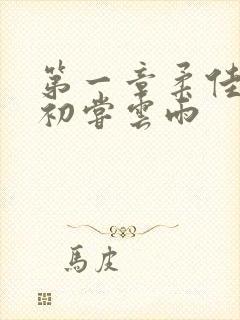 第一章柔佳
初嘗雲雨
馬皮